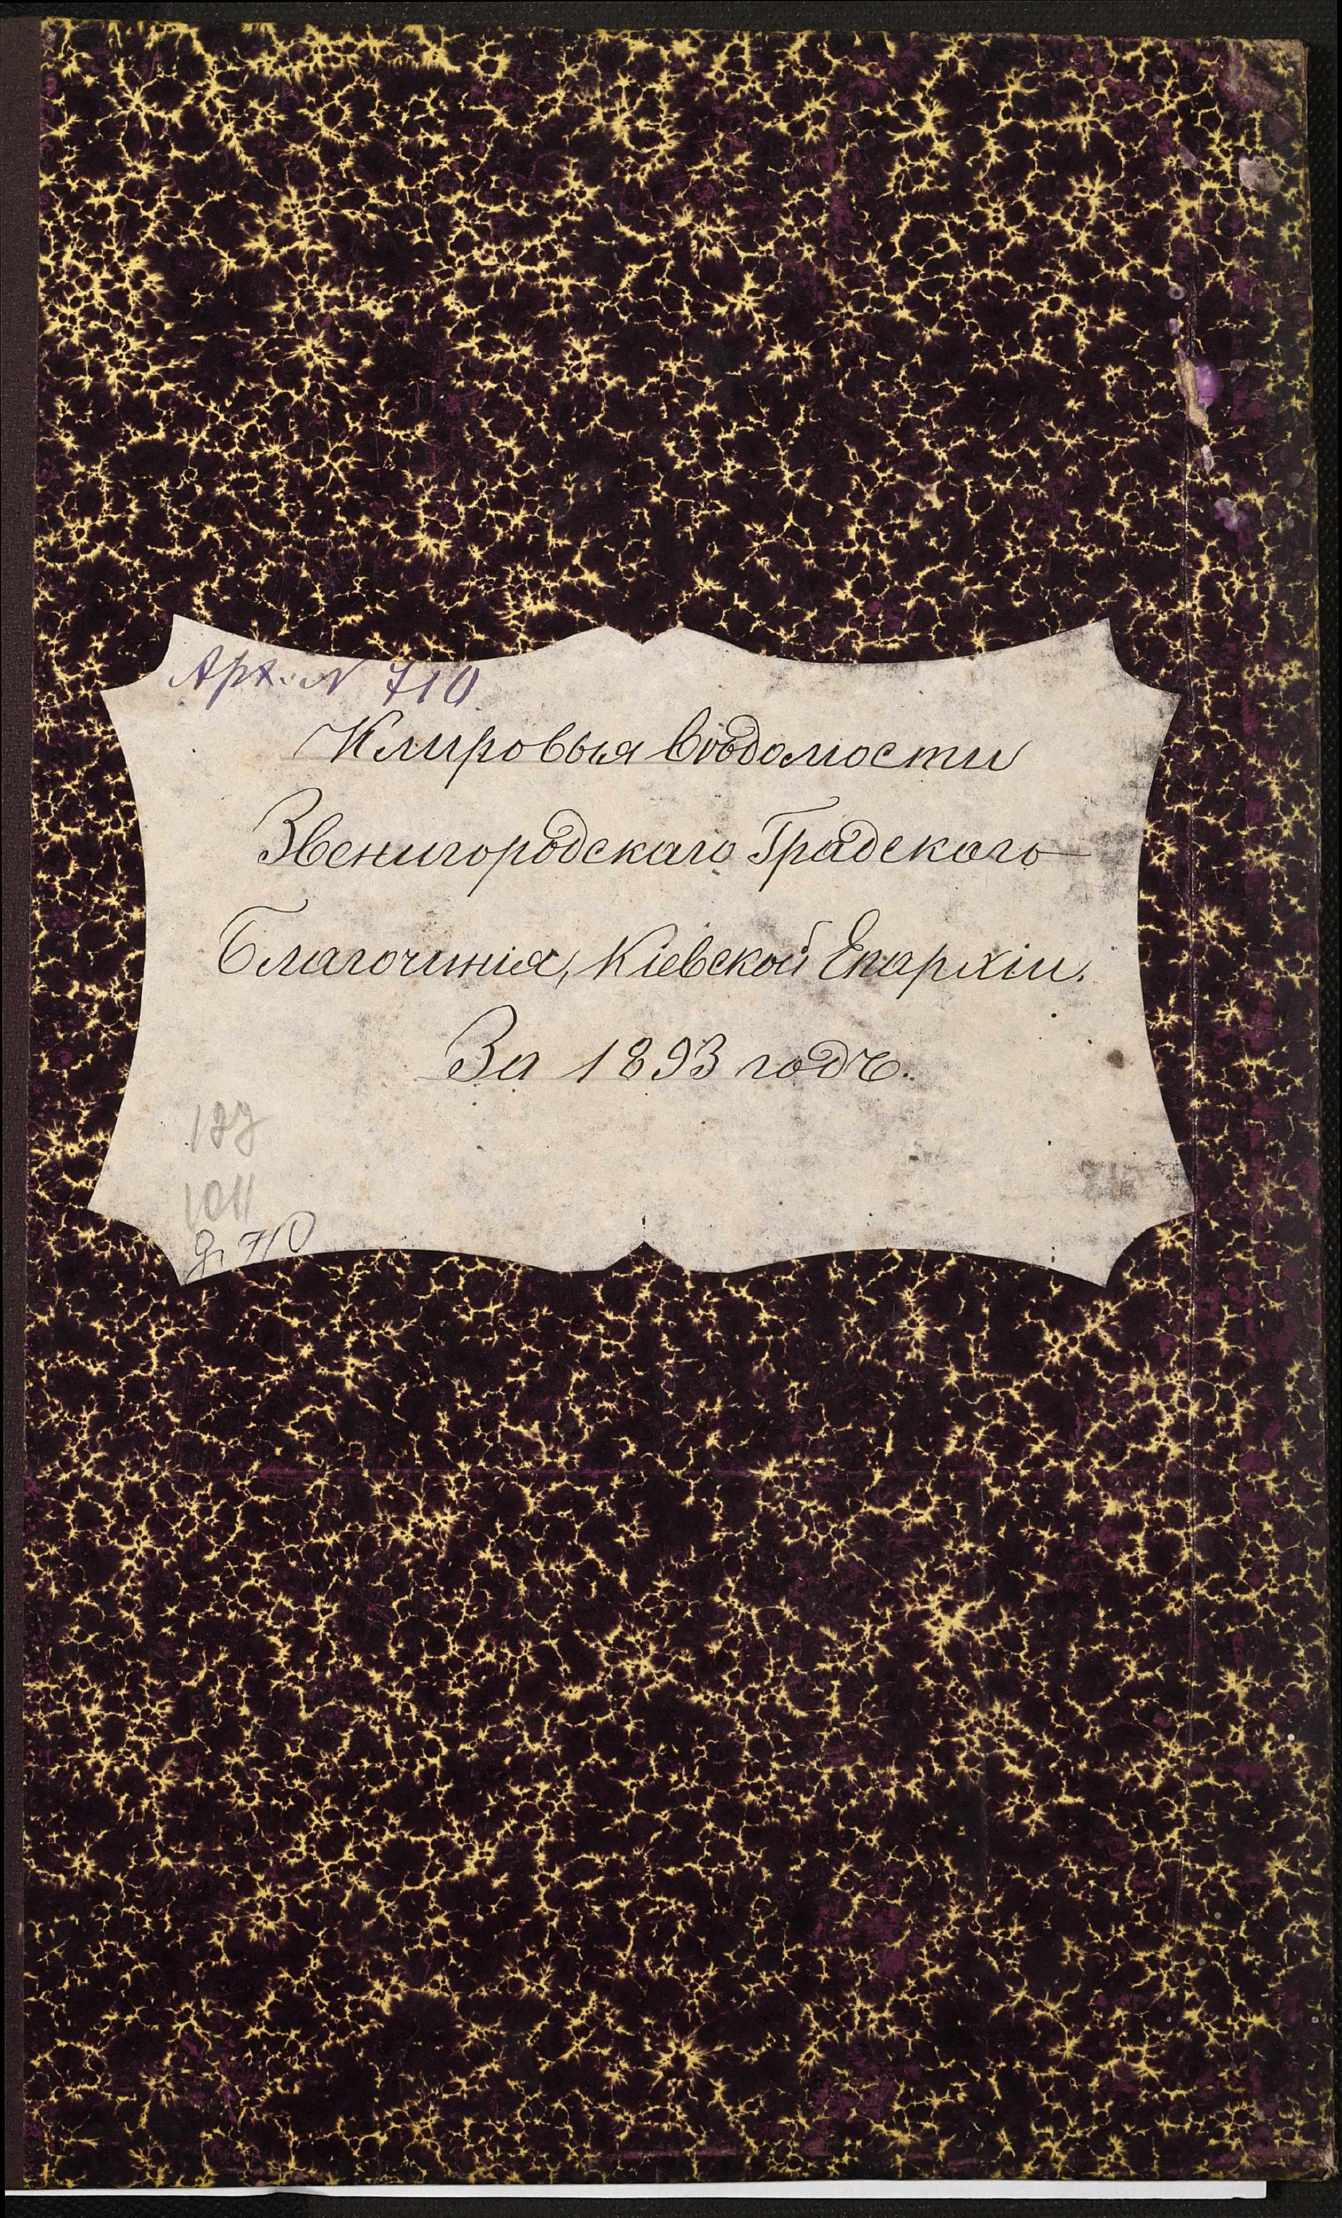 Арх. N 710
Клировыя вѣдомости
Звенигородскаго Градскаго
Благочинія, Кіевской Епархіи.
За 1893 годъ.
127
1011
д. 710